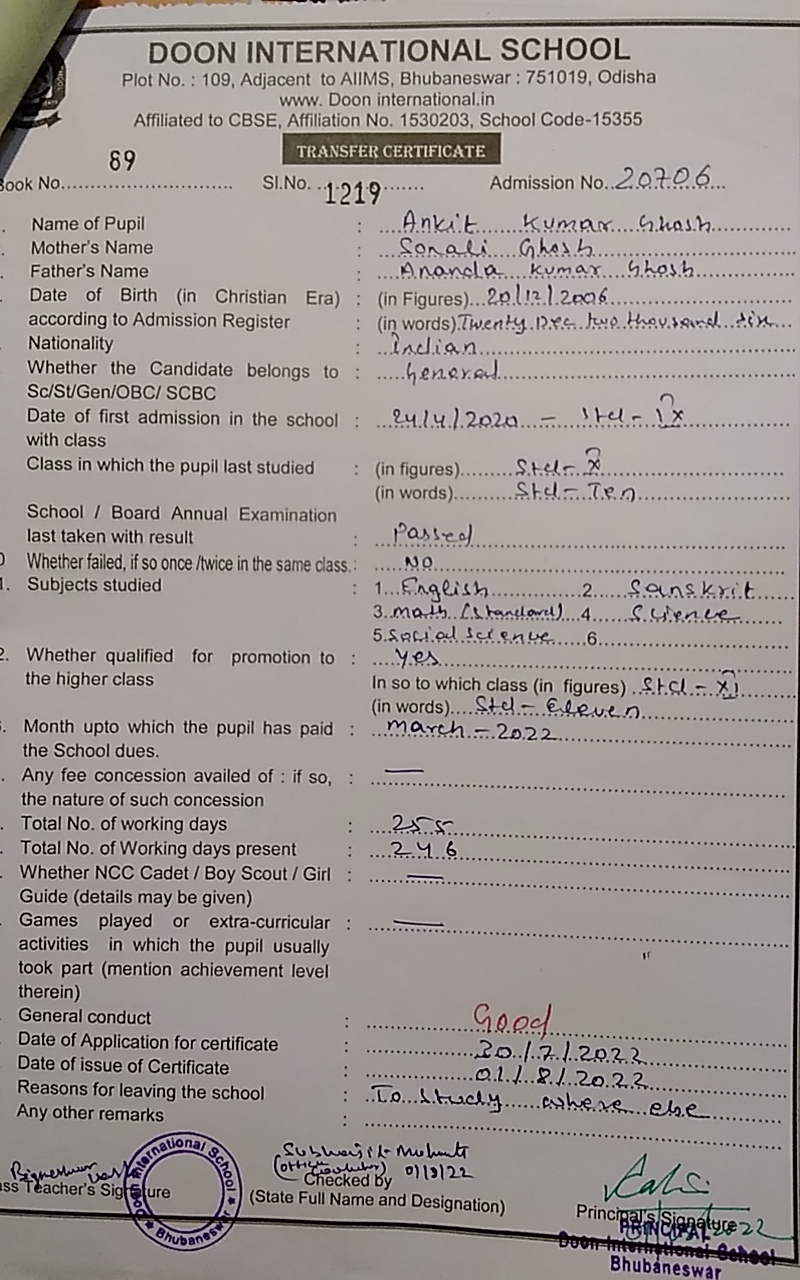 DOON INTERNATIONAL SCHOOL
Plot No. : 109, Adjacent to AIIMS, Bhubaneswar : 751019, Odisha
www. Doon international.in
Affiliated to CBSE, Affiliation No. 1530203, School Code-15355
TRANSFER CERTIFICATE
Book No. 89 Sl.No. 1219 Admission No. 20706
Name of Pupil : Ankit Kumar Ghosh
Mother's Name : Sonali Ghosh
Father's Name : Ananda Kumar Ghosh
Date of Birth (in Christian Era) : (in Figures) 20/12/2006
according to Admission Register : (in words) Twenty Dec two thousand six
Nationality : Indian
Whether the Candidate belongs to : General
Sc/St/Gen/OBC/ SCBC
Date of first admission in the school : 24/4/2020 - Std - IX
with class
Class in which the pupil last studied : (in figures) Std - X
(in words) Std - Ten
School / Board Annual Examination
last taken with result : Passed
0 Whether failed, if so once /twice in the same class. : NO
1. Subjects studied : 1. English 2. Sanskrit
3. Math (Standard) 4. Science
5. Social Science 6.
2. Whether qualified for promotion to : Yes
the higher class In so to which class (in figures) Std - XI
(in words) Std - Eleven
Month upto which the pupil has paid : March - 2022
the School dues.
Any fee concession availed of : if so, : —
the nature of such concession
Total No. of working days : 255
Total No. of Working days present : 246
Whether NCC Cadet / Boy Scout / Girl : —
Guide (details may be given)
Games played or extra-curricular : —
activities in which the pupil usually
took part (mention achievement level
therein)
General conduct : Good
Date of Application for certificate : 30/7/2022
Date of issue of Certificate : 01/8/2022
Reasons for leaving the school : To study where else
Any other remarks :
01/8/22
Class Teacher's Signature
Checked by
(State Full Name and Designation)
Principal's Signature
International School
Bhubaneswar
PRINCIPAL
Doon International School
Bhubaneswar